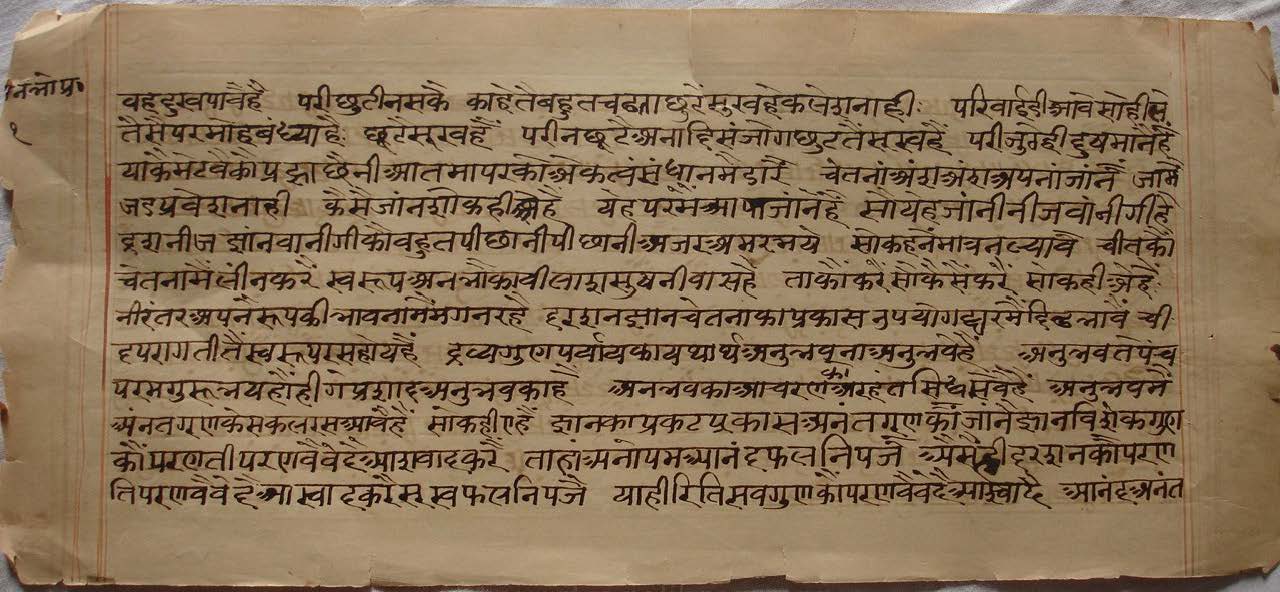 अनभोप्र०
१
वहदुखपावैहै परीछुटीनसकै काहेतैबहुतचढ्याछुरैसुखहेकलेशनाही
तैसैपरमोहबंध्याहै छूटेसुखहैं परीनछूटैअनादिसंजोगछुटतैसुखहै
याकै प्रज्ञाछैनीआतमापरकौअेकत्वसंधानमैडारै चेतनांअंशअंशअपनांजांनै जामै
जडप्रवेशनाही कैसैजांनशोकहीअेहै सोयहजांनीनीजबांनीगीहै
नीजज्ञांनबानीगीकौबहुतपीछानीपीछानीअजरअमरभये सोकहनेमात्रनल्यावै चीतकौ
चेतनामैलींनकरै स्वरूपअनभौकावीलाशसुषनीवासहै ताकौंकरैसोकैसैंकरैं सोकहीअेहै
नीरंतरअपनैरूपकीभावनामैंमगनरहै दरशनज्ञानचेतनाकाप्रकासउपयोगद्वारमैंदिढभावै ची
दपरागतीतैंस्वरूपरसहोयहैं द्रव्यगुणपर्यायकायथार्थअनुभवूनाअनुभवेहै अनुभवतेपंच
परमगुरूभयहोंहीगेप्रशादअनुभवकाहै अनभवकाआचरणकौअरहंतसिधंसेवैहैं अनुभवमें
अंनतगुणकेसकलरसआवैहैं सोकहीएहैं ज्ञांनकाप्रकटप्रकासअनंतगुणकौंजांनैज्ञानविशेकगुण
कौंपरणतीपरणवैवेदेआशवादकरै ताहांअनोपमआनंदफलनिपजै अैसैंहीदरशनकौपरण
तिपरणवैवेदेआस्वादकरैसुखफलनिपजै याहीरितिसवगुणकौंपरणवैवेदेआस्वादै आनंदअनंत